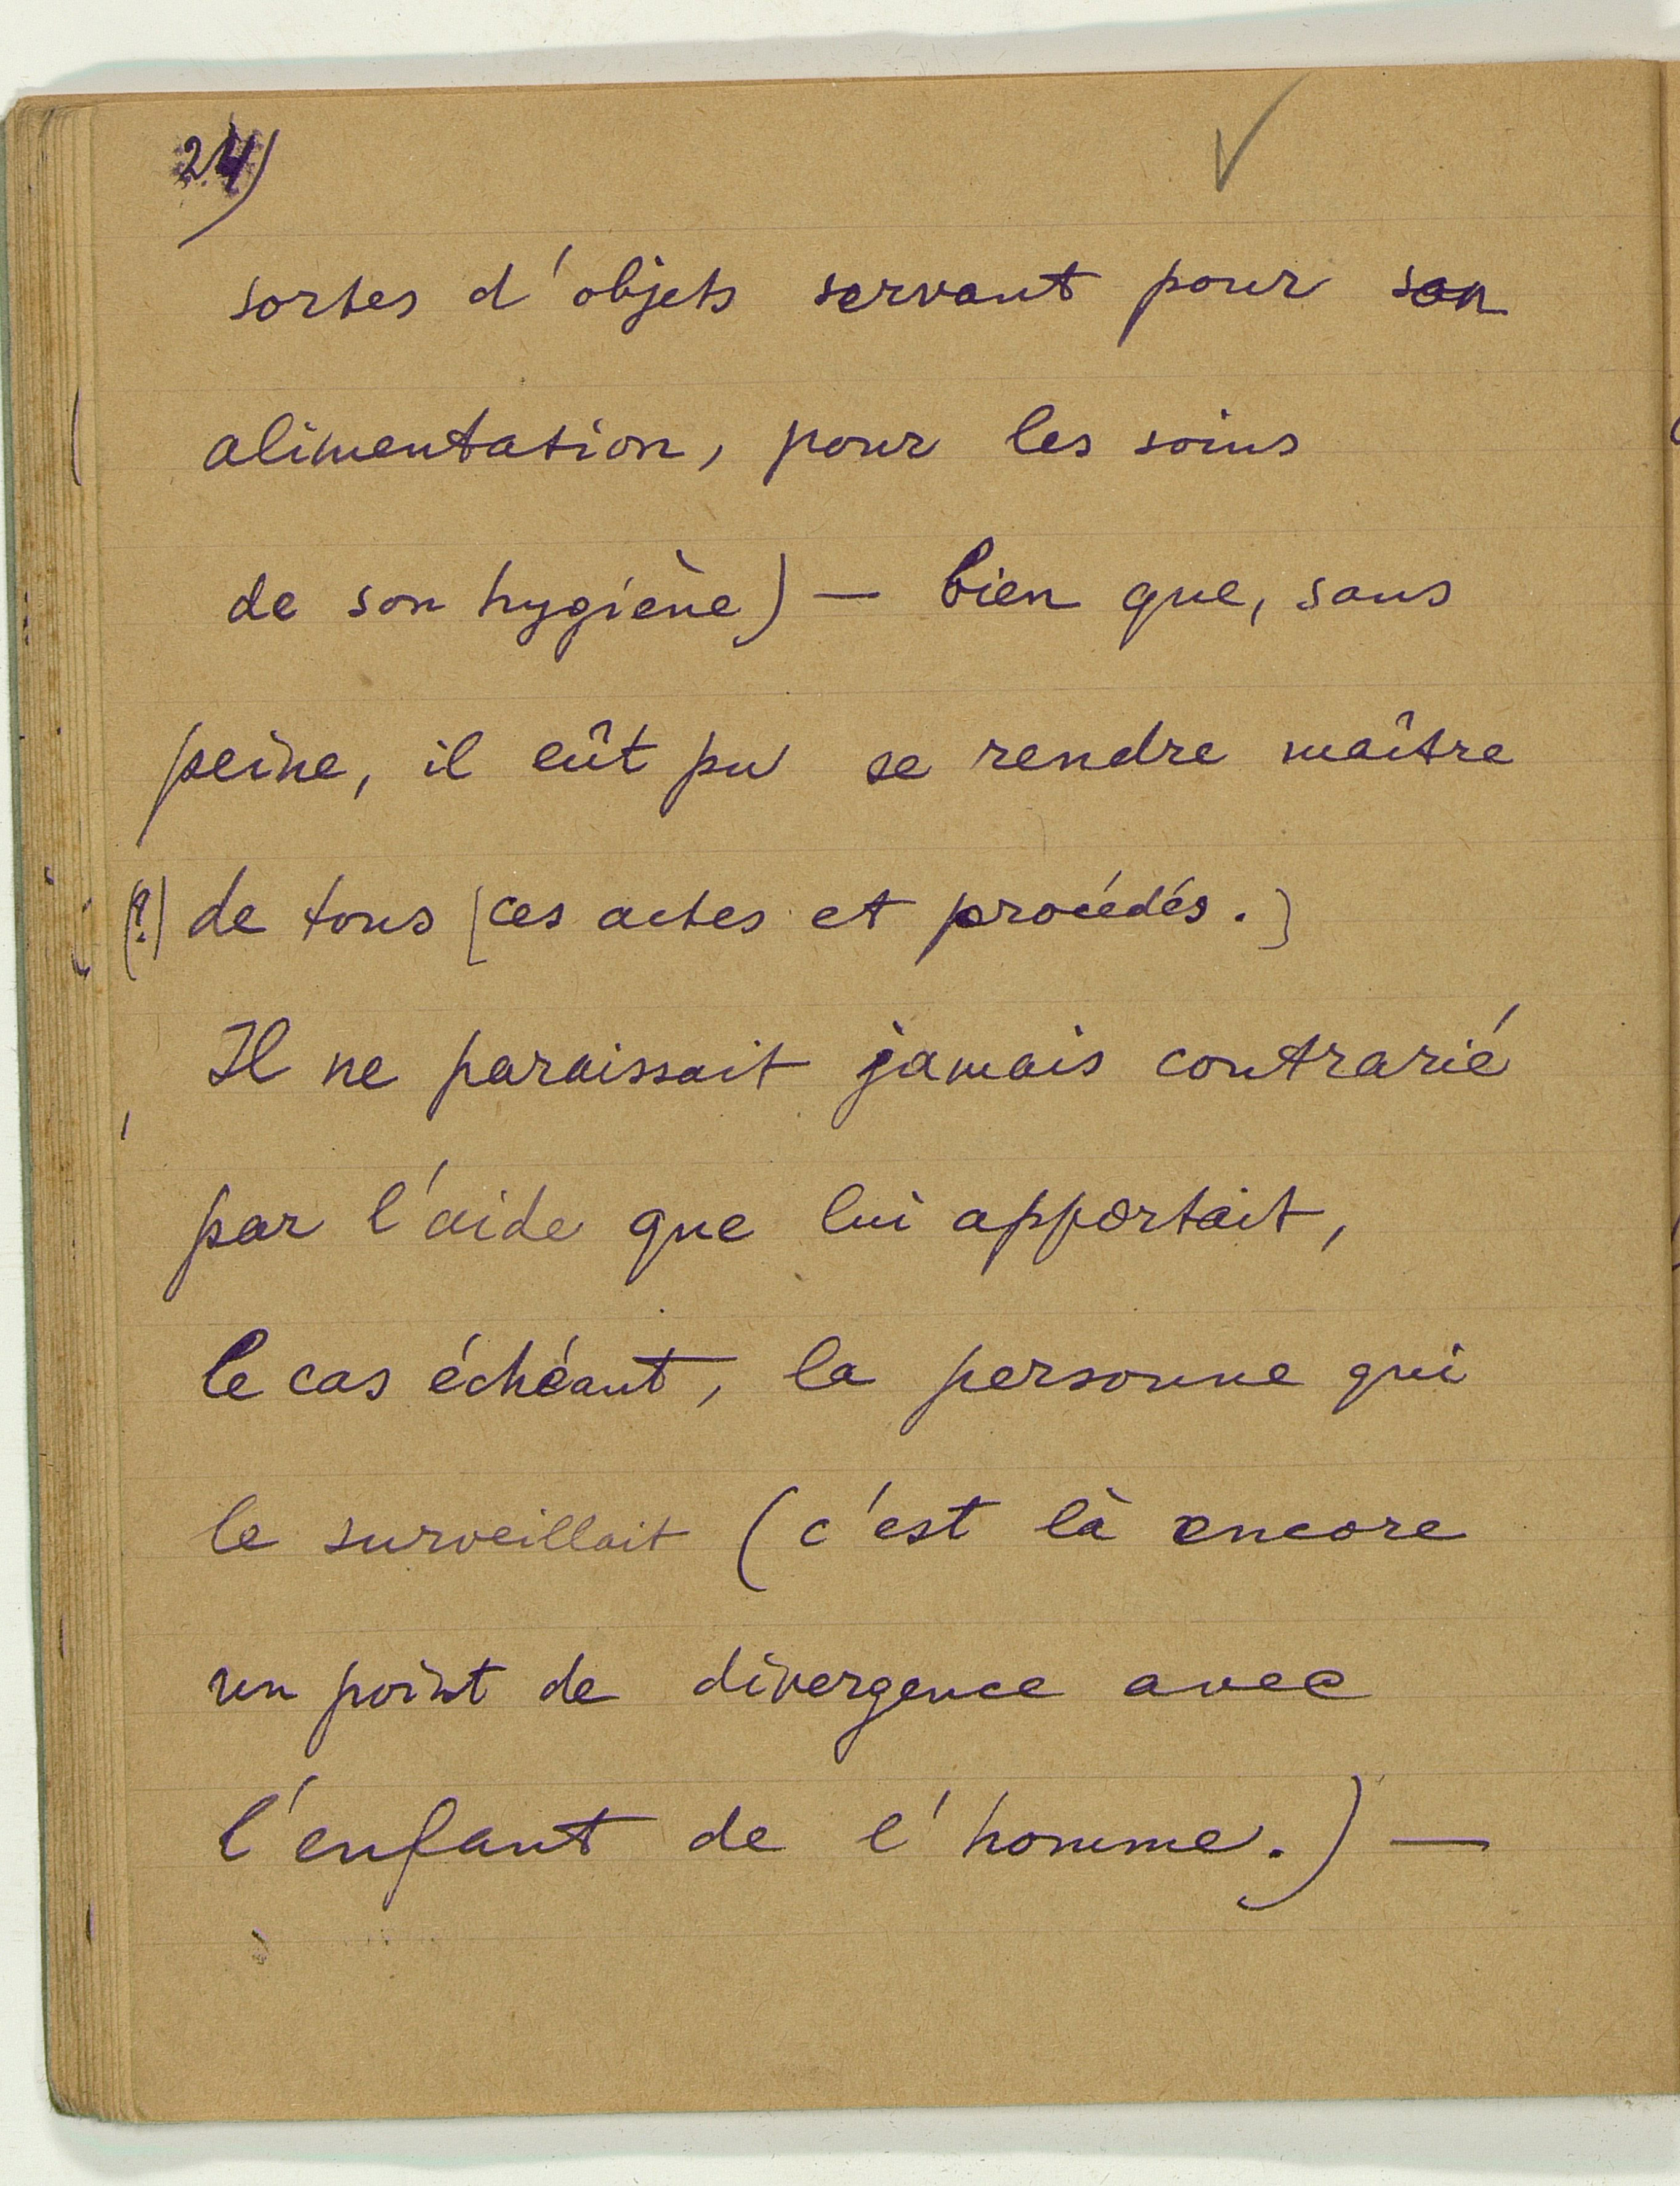 24)
sortes d'objets servant pour son
alimentation, pour les soins
de son hygiène) — bien que, sans
peine, il eût pu se rendre maître
(?) de tous [ces actes et procédés.]
Il ne paraissait jamais contrarié
par l'aide que lui apportait,
le cas échéant, la personne qui
le surveillait (c'est là encore
un point de divergence avec
l'enfant de l'homme.) —